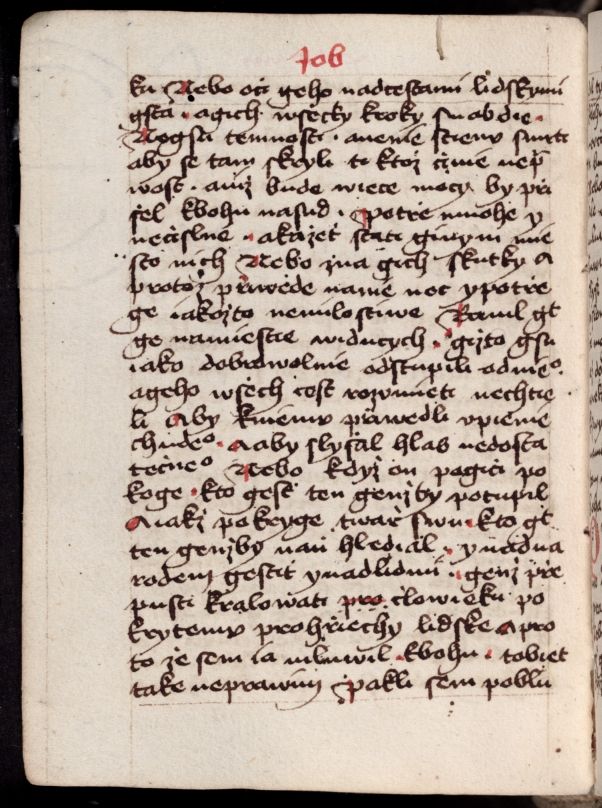 Job
ku Nebo oči geho nadcestami lidskymi
gsta · agich wsecky kroky snabdie ·
Nogsu temnosti · anenie stienu smrti
aby se tam skryli ti ktoz čznie nep̄
wost · aniz bude wiece mocy by při
šel kbohu nasud · potře mnohe y
nečislne · akažeť stati ginym mie
sto nich Nebo zna gich skutky A
protož přiwede namie noc ypotře
ge iakožto nemilostiwe Ranil gt
ge namiestie widucych · gižto gsu
iako dobrowolnie odstupili odnieo
ageho wsech cest rozumieti nechtie
li Aby kniemu přiwedli vpienie
chudeo · Aaby slysal hlas nedosta
tečneo Nebo když on pogiči po
koge · kto gest ten genžby potupil
Aiakž pokryge twař swu · kto gt
ten genžby naň hledial · ynadna
rodem gestit ynadlidmi · genž pře
pusti kralowati pro člowieka po
krytemu prohřiechy lidske Apro
to že sem ia mluwil kbohu · tobiet
take neprawim pakli sem poblu